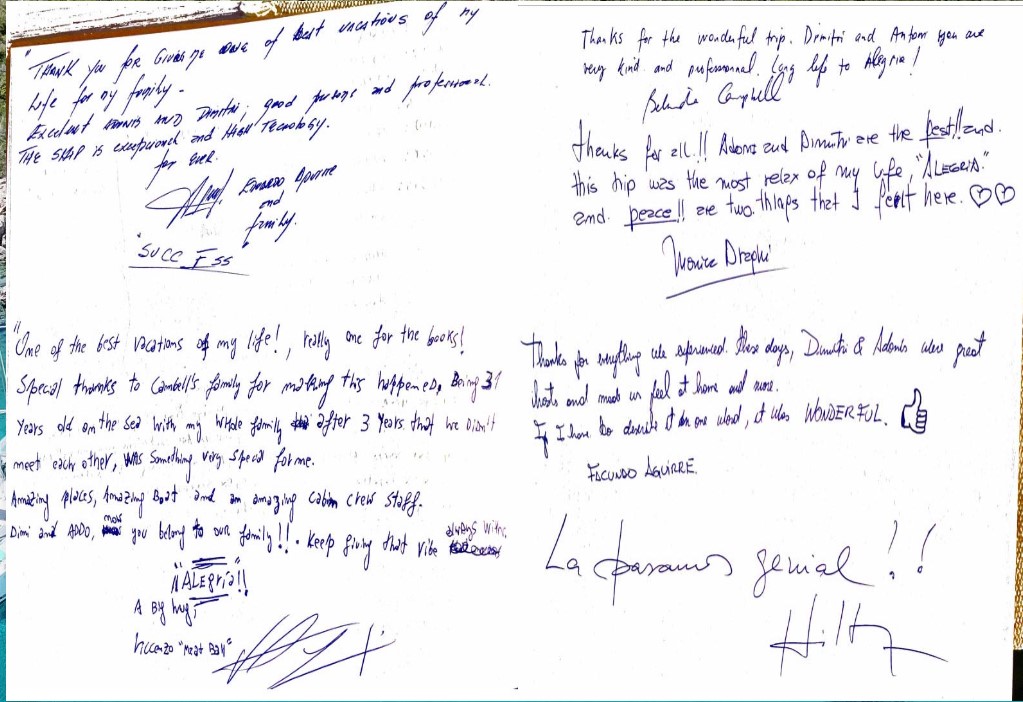 "THANK YOU FOR Giving me one of best vacations of my
Life for my family -
Excelent Adonis AND Dimitri, good persons and professional.
THE SHIP is exceptional and High Tecnology.
for ever.
EDUARDO AGUIRRE
and
family.
"SUCCESS"
Thanks for the wonderful trip. Dimitri and Antom you are
very kind and professionnal. Long life to Alegria!
Belinda Campbell
thenks for all!! Adonis and Dimitri are the best!! and
this trip was the most relax of my life, "ALEGRIA"
and peace!! are two things that I felt here. ♡♡
Monica Draghi
"One of the best vacations of my life!, really one for the books!
Special thanks to Cambell's family for making this happened, Being 31
Years old on the sea with my whole family after 3 years that we Didn't
meet each other, WAS Something very special for me.
Amazing places, Amazing Boat and an amazing cabin crew staff.
Dimi and ADDO, now you belong to our family!!. Keep giving that vibe always with:
"¡¡ALEgria!!"
A Big hug,
Viccenzo "Meat Ball"
Thanks for everything we experienced these days, Dimitri & Adonis were great
hosts and made us feel at home and more.
If I have to describe it in one word, it was WONDERFUL.
FACUNDO AGUIRRE.
La pasamos genial!!